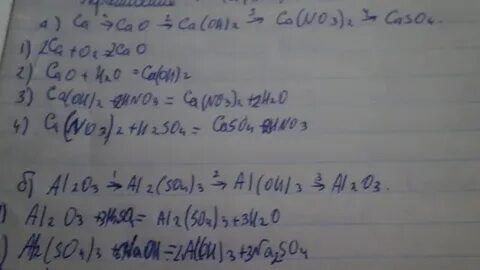 а) Ca →1 CaO →2 Ca(OH)2 →3 Ca(NO3)2 →4 CaSO4.
1) 2Ca + O2 = 2CaO
2) CaO + H2O = Ca(OH)2
3) Ca(OH)2 + 2HNO3 = Ca(NO3)2 + 2H2O
4) Ca(NO3)2 + H2SO4 = CaSO4 + 2HNO3
б) Al2O3 →1 Al2(SO4)3 →2 Al(OH)3 →3 Al2O3.
) Al2O3 + 3H2SO4 = Al2(SO4)3 + 3H2O
) Al2(SO4)3 + 6NaOH = 2Al(OH)3 + 3Na2SO4